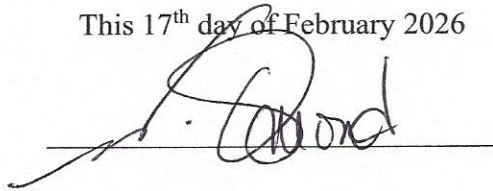 This 17th day of February 2026